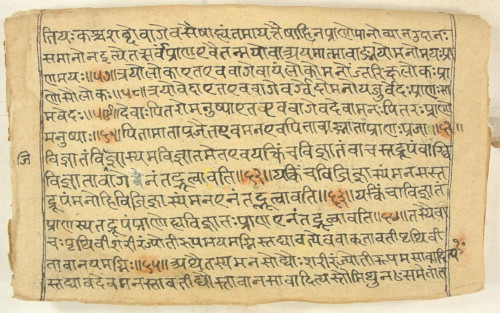 त्तियः कश्च शब्दो वागेव सैषाह्यंतमायत्तैषाहि न प्राणोपानोव्यान उदानः
समानोन इत्येतत्सर्वं प्राण एवैतन्मयोवा अयमात्मा वाङ्मयो मनोमयः प्रा
णमयः॥५७॥ त्रयोलोका एत एव वागेवायं लोकोमनोंतरिक्षलोकः प्रा
णोसौलोकः॥५८॥ त्रयोवेदा एत एव वागेवर्ग्वेदोमनोयजुर्वेदः प्राणः सा
मवेदः॥५९॥ देवाः पितरोमनुष्या एत एव वागेव देवामनः पितरः प्राणो
मनुष्याः॥६०॥ पितामाताप्रजैत एव मन एव पितावाङ्माता प्राणः प्रजा॥६१॥
विज्ञातं विजिज्ञास्यमविज्ञातमेत एव यत्किंच विज्ञातं वाचस्तद्रूपं वाग्घि
जि
विज्ञाता वागेनं तद्भूत्वावति॥६२॥ यत्किंच विजिज्ञास्यं मनसस्त
द्रूपं मनोहि विजिज्ञास्यं मन एनं तद्भूत्वावति॥६३॥ यत्किंचाविज्ञातं
प्राणस्य तद्रूपं प्राणोह्यविज्ञातः प्राण एनं तद्भूत्वावति॥६४॥ तस्यैवा
चः पृथिवी शरीरंज्योतीरूपमयमग्निस्तद्यावत्येव वाक्तावती पृथिवी
तावानयमग्निः॥६५॥ अथैतस्य मनसोद्यौः शरीरंज्योतीरूपमसावादित्य
स्तद्यावदेव मनस्तावती द्यौस्तावानसावादित्यस्तौमिथुनꣳसमैतांत